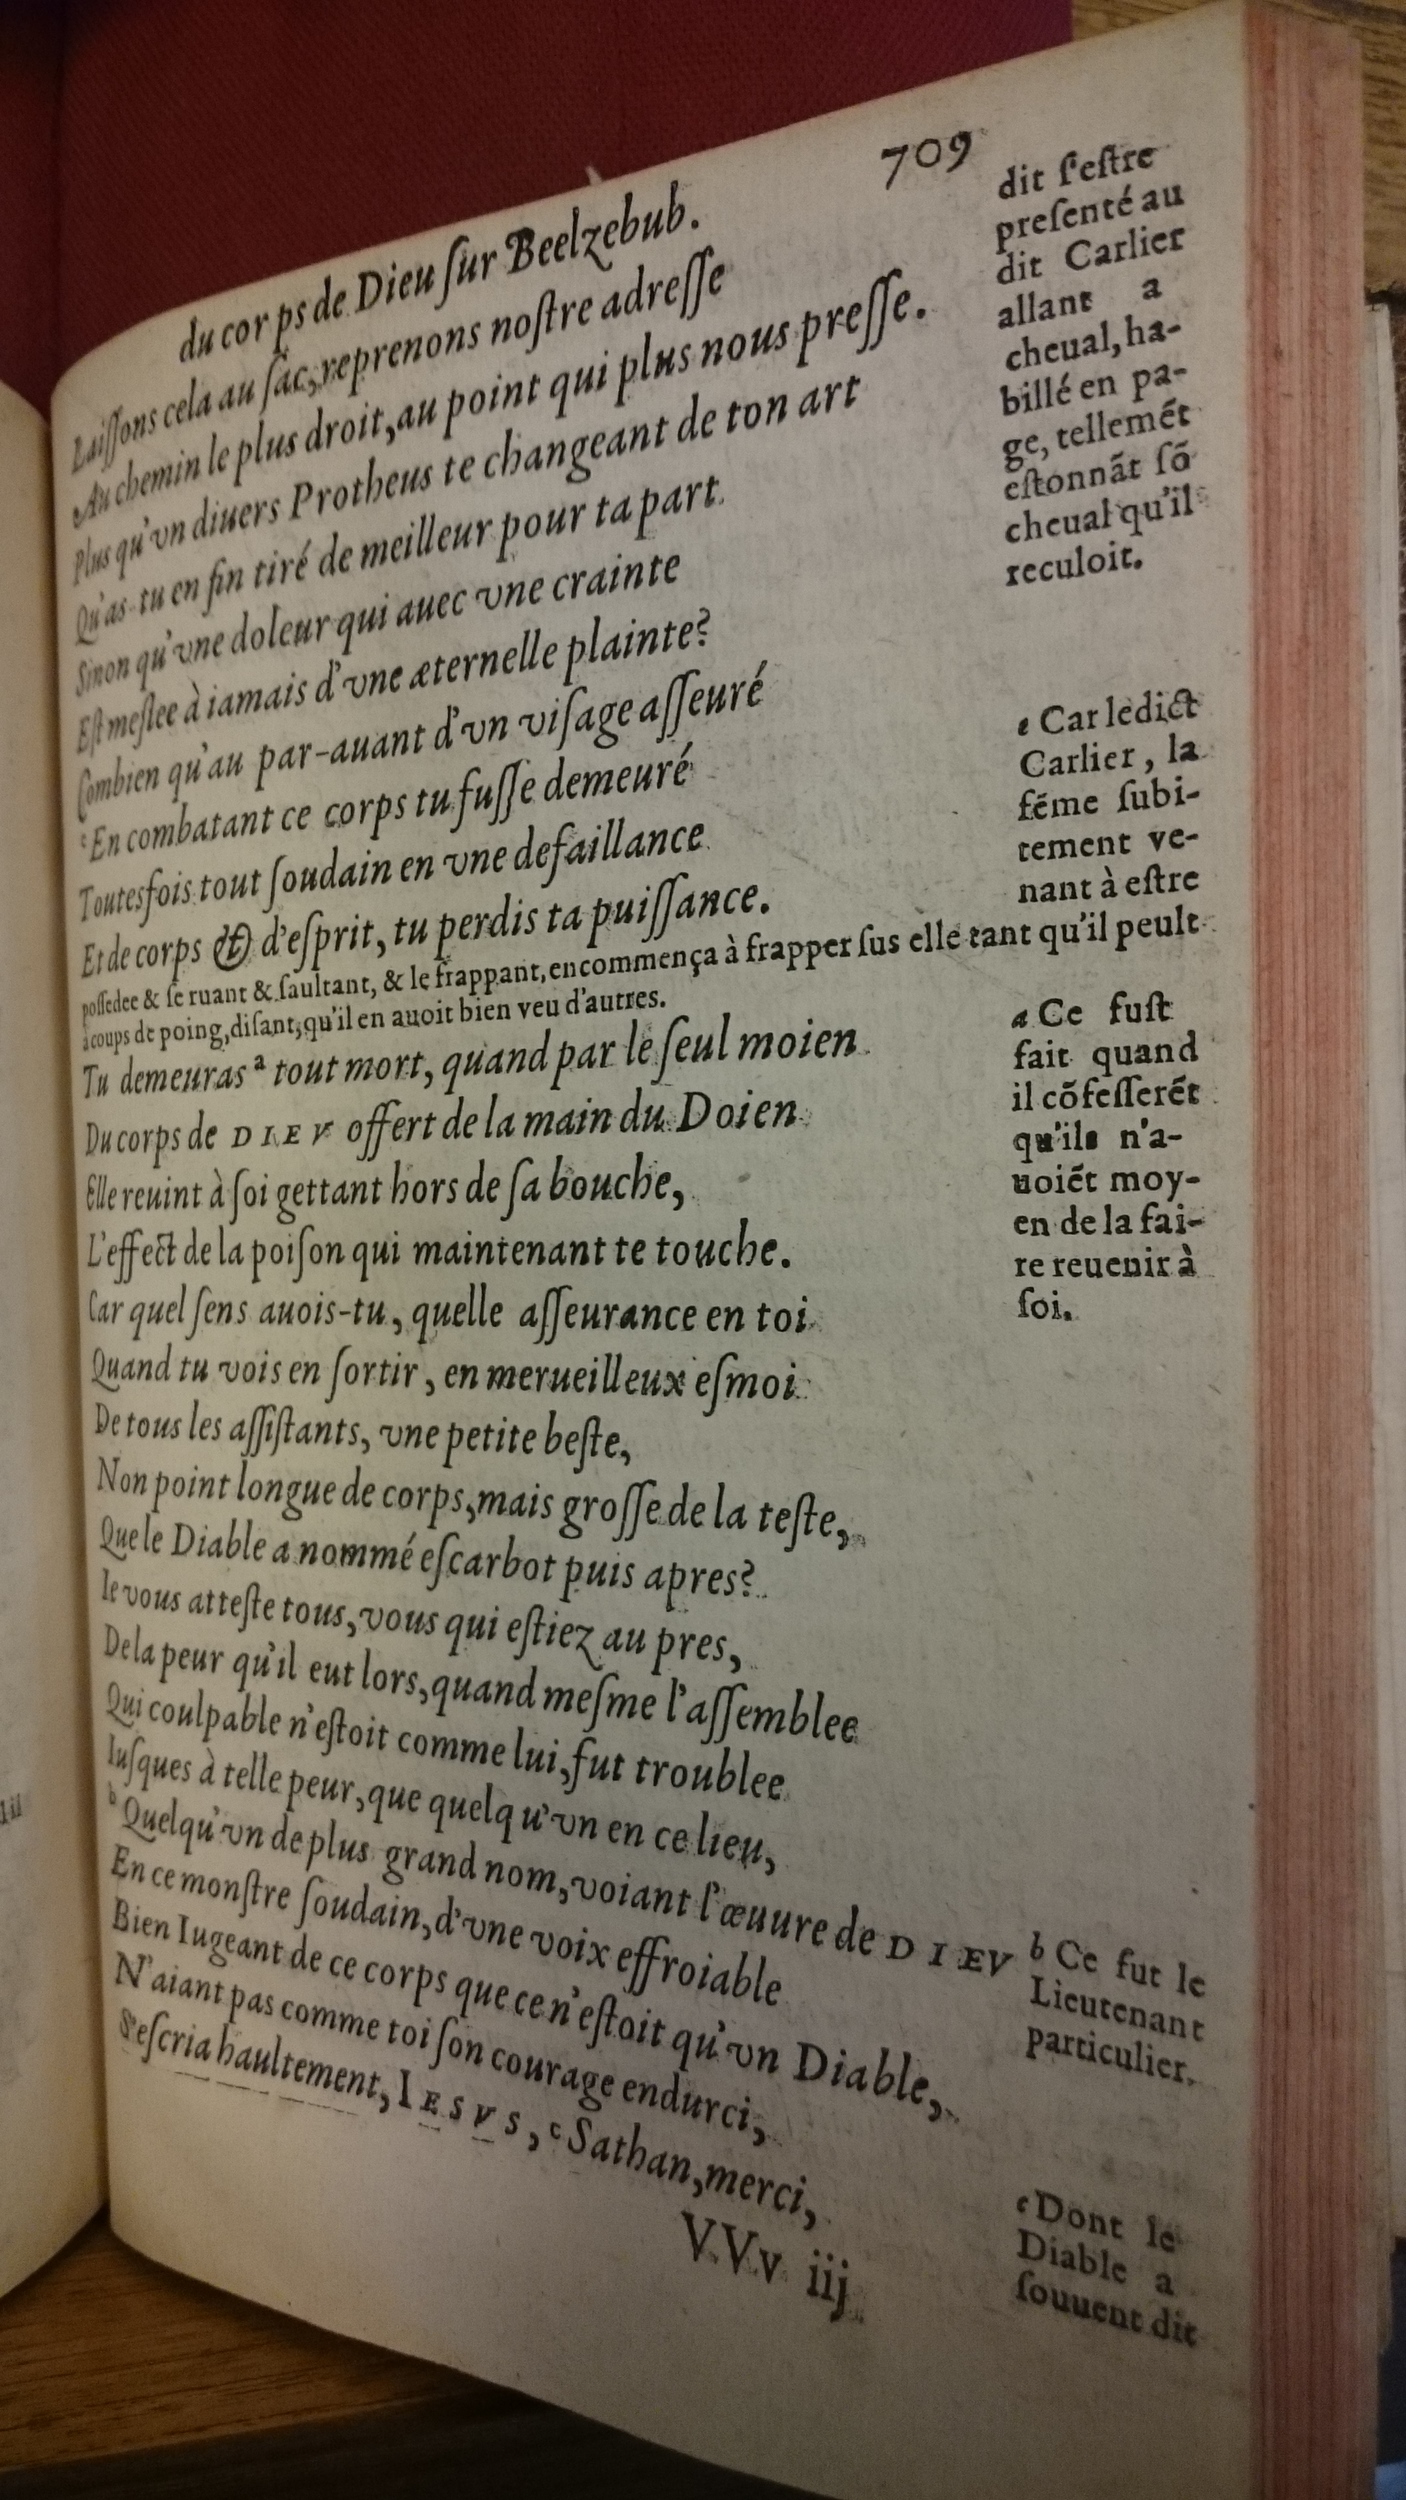 709
du corps de Dieu ſur Beelzebub.
Laiſſons cela au ſac, reprenons noſtre adreſſe
Au chemin le plus droit, au point qui plus nous preſſe.
Plus qu'vn diuers Protheus te changeant de ton art
Qu'as-tu en fin tiré de meilleur pour ta part
Sinon qu'vne doleur qui auec vne crainte
Eſt meſlee à iamais d'vne æternelle plainte?
Combien qu'au par-auant d'vn viſage aſſeuré
e En combatant ce corps tu fuſſe demeuré
Toutesfois tout ſoudain en vne defaillance
Et de corps & d'eſprit, tu perdis ta puiſſance.
poſſedee & ſe ruant & ſaultant, & le frappant, encommença à frapper ſus elle tant qu'il peult
à coups de poing, diſant, qu'il en auoit bien veu d'autres.
Tu demeuras a tout mort, quand par le ſeul moien
Du corps de DIEV offert de la main du Doien
Elle reuint à ſoi gettant hors de ſa bouche,
L'effect de la poiſon qui maintenant te touche.
Car quel ſens auois-tu, quelle aſſeurance en toi
Quand tu vois en ſortir, en merueilleux eſmoi
De tous les aſſiſtants, vne petite beſte,
Non point longue de corps, mais groſſe de la teſte,
Que le Diable a nommé eſcarbot puis apres?
Ie vous atteſte tous, vous qui eſtiez au pres,
De la peur qu'il eut lors, quand meſme l'aſſemblee
Qui coulpable n'eſtoit comme lui, fut troublee
Iuſques à telle peur, que quelqu'vn en ce lieu,
b Quelqu'vn de plus grand nom, voiant l'œuure de DIEV
En ce monſtre ſoudain, d'vne voix effroiable
Bien Iugeant de ce corps que ce n'eſtoit qu'vn Diable,
N'aiant pas comme toi ſon courage endurci,
S'eſcria haultement, IESVS, c Sathan, merci,
VVv iij
dit ſ'eſtre
preſenté au
dit Carlier
allant a
cheual, ha-
billé en pa-
ge, tellemẽt
eſtonnãt ſõ
cheual qu'il
reculoit.
e Car ledict
Carlier, la
fẽme ſubi-
tement ve-
nant à eſtre
a Ce fuſt
fait quand
il cõfeſſerẽt
qu'ils n'a-
uoiẽt moy-
en de la fai-
re reuenir à
ſoi.
b Ce fut le
Lieutenant
particulier.
c Dont le
Diable a
ſouuent dit